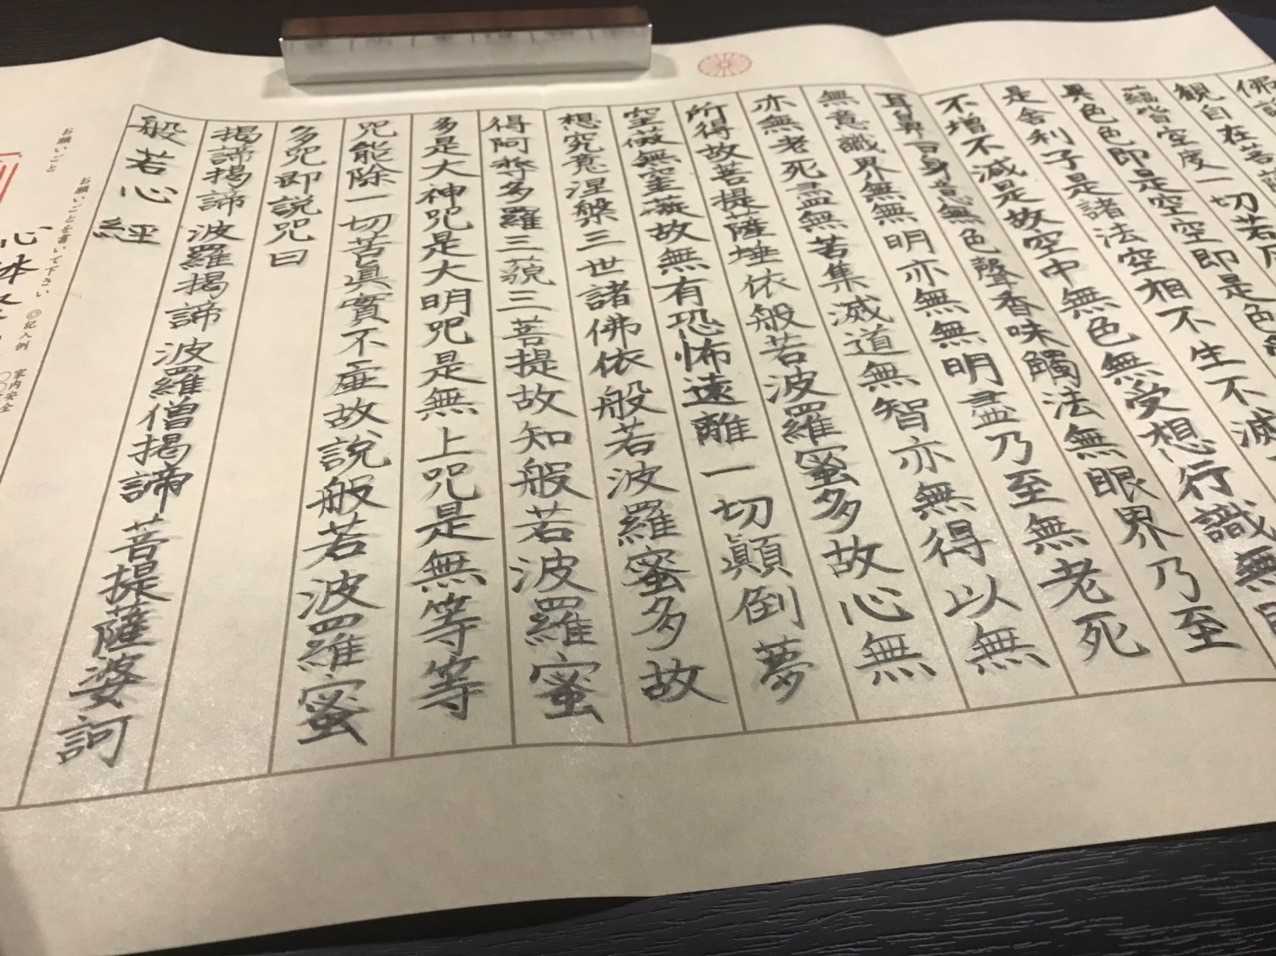 佛說
観自在菩薩
蘊皆空度一切苦厄
異色色即是空空即是色
是舍利子是諸法空相不生不滅
不增不減是故空中無色無受想行識無眼
耳鼻舌身意無色聲香味觸法無眼界乃至
無意識界無無明亦無無明盡乃至無老死
亦無老死盡無苦集滅道無智亦無得以無
所得故菩提薩埵依般若波羅蜜多故心無
罣礙無罣礙故無有恐怖遠離一切顛倒夢
想究竟涅槃三世諸佛依般若波羅蜜多故
得阿耨多羅三藐三菩提故知般若波羅蜜
多是大神咒是大明咒是無上咒是無等等
咒能除一切苦真實不虛故說般若波羅蜜
多咒即說咒曰
揭諦揭諦波羅揭諦波羅僧揭諦菩提薩婆訶
般若心經
お願いごと
お願いごとを書いて下さい ◎記入例 家内安全
心体